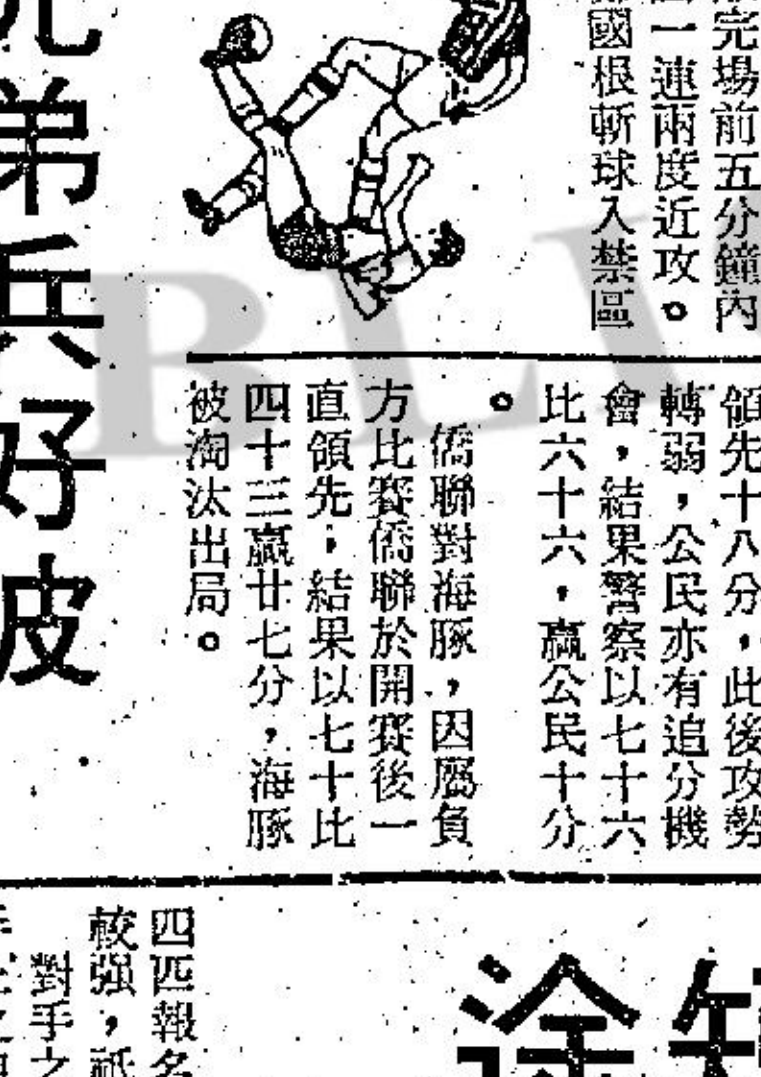 完場前五分鐘內
一連兩度近攻。
國根斬球入禁區
領先十八分，此後攻勢
轉弱，公民亦有追分機
會，結果警察以七十六
比六十六，贏公民十分
。
僑聯對海豚，因屬負
方比賽僑聯於開賽後一
直領先；結果以七十比
四十三贏廿七分，海豚
被淘汰出局。
弟兵好波
四匹報名
較强，祇
對手之
BLI